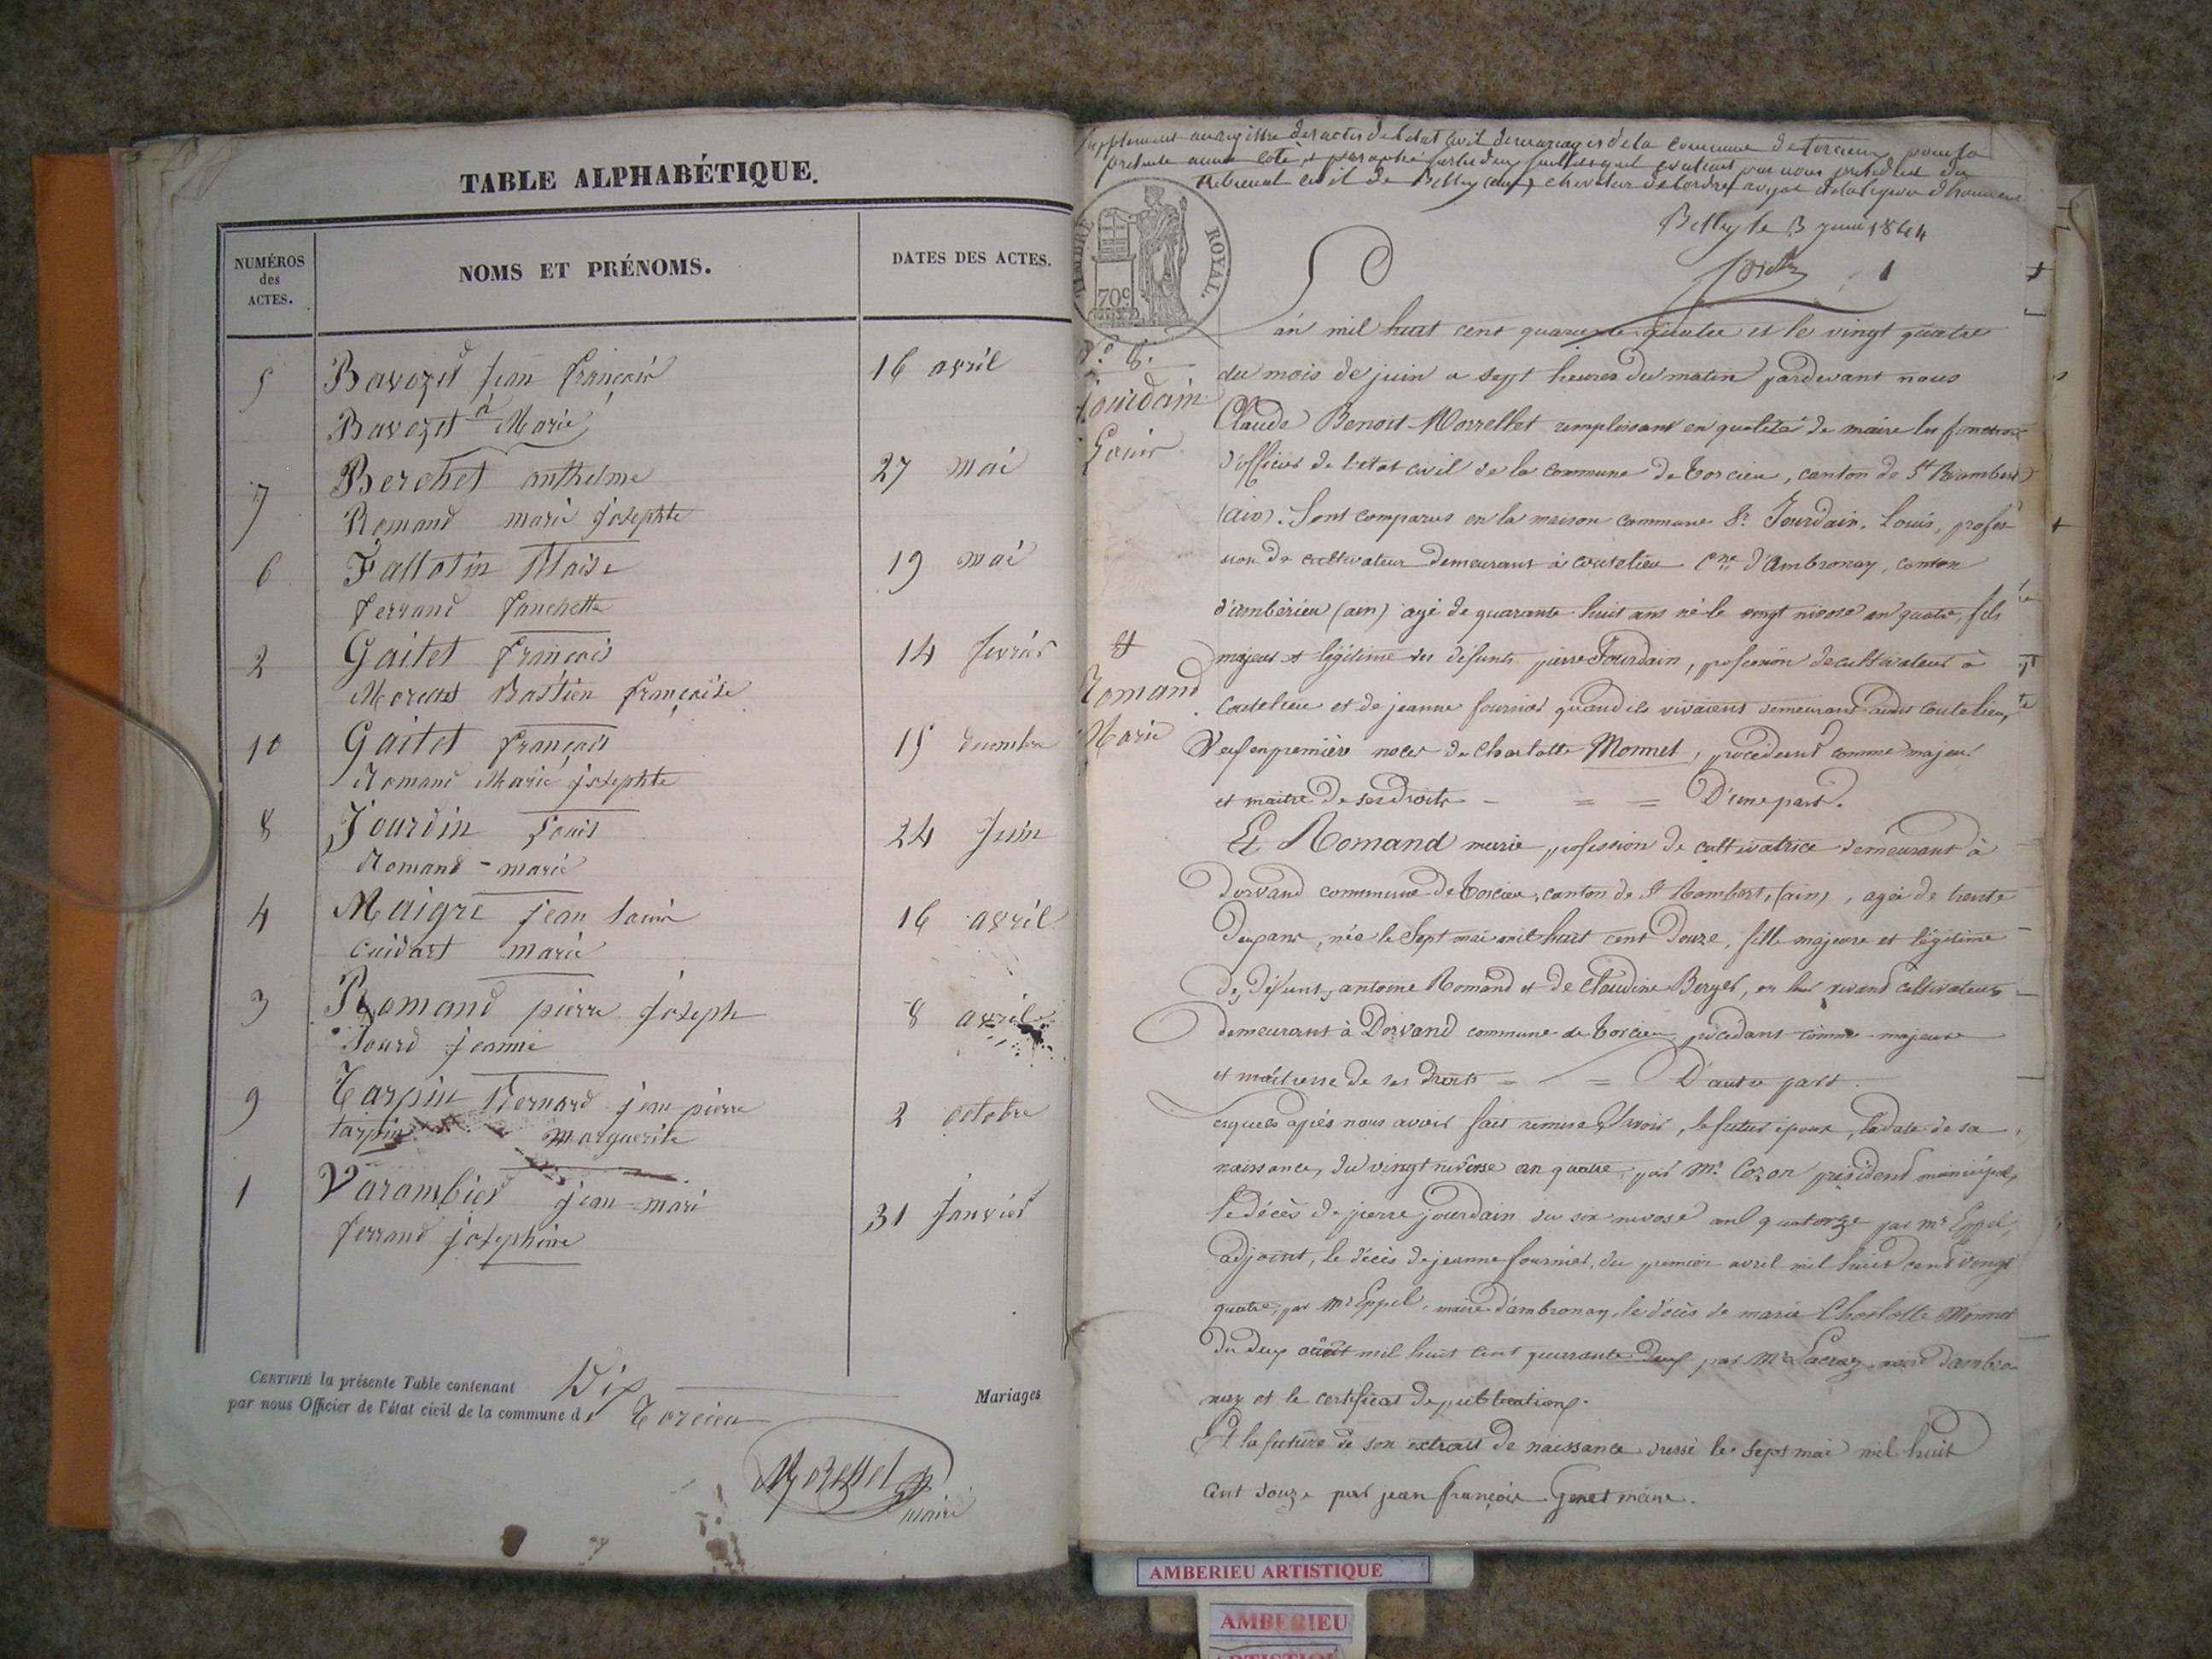 TABLE ALPHABÉTIQUE.
NUMÉROS des ACTES.
NOMS ET PRÉNOMS.
DATES DES ACTES.
5 Bavozet Jean françois 16 avril
à
Bavozet Marie
7 Berchet anthelme 27 mai
Romand marie josephte
6 Fallatin Blaise 19 mai
ferrand fanchette
2 Gaitet françois 14 fevrier
Bastien françoise
10 Gaitet françois 15 decembre
Romand Marie josephte
8 Jourdin Louis 24 Juin
Romand - marie
4 Maigre jean louis 16 avril
Cuidart marie
3 Romand pierre joseph 8 avril
Jourd jeanne
9 Tarpin Bernard jean pierre 2 octobre
tarpin marguerite
1 Varambier jean-mari 31 Janvier
ferrand josephine
CERTIFIÉ la présente Table contenant Dix Mariages
par nous Officier de l'état civil de la commune de Torcieu
Morellet
maire
Supplement au registre des actes de l'etat civil de mariages de la commune de torcieu pour la
presente année coté et paraphé sur les deux feuilles par nous president du
tribunal civil de Belley (ain) chevalier de l'ordre royal de la legion d'honneur
Belley le 3 1844
1
TIMBRE ROYAL.
70c
N.o 8.
Jourdain
Louis
et
Romand
Marie
L'an mil huit cent quarante quatre et le vingt quatre
du mois de juin a sept heures du matin pardevant nous
Claude Benoit Morrellet remplissant en qualité de maire les fonctions
d'officier de l'etat civil de la commune de Torcieu, canton de St Rambert
(ain). Sont comparus en la maison commune Sr. Jourdain. Louis, profes-
sion de cultivateur demeurant à coutelieu Cne d'Ambronay, canton
d'ambérieu (ain) agé de quarante huit ans né le vingt nivose an quatre, fils
majeur et légitime des défunts pierre Jourdain, profession de cultivateur à
Coutelieu et de jeanne fournier quand ils vivaient demeurant audit coutelieu,
Veuf en première noces de Charlotte Monnet, procedant comme majeur
et maitre de ses droits - = = D'une part.
Et Romand marie, profession de cultivatrice demeurant à
Dorvand commune de Torcieu, canton de St Rambert, (ain), agée de trente
deux ans, née le Sept mai mil huit cent douze, fille majeure et légitime
des défunts antoine Romand et de Claudine Berger, en leur vivand cultivateurs
demeurant à Dorvand commune de Torcieu procedant comme majeure
et maîtresse de ses droits = = D'autre part.
esquels après nous avoir fait remise Savoir, le futur époux, la date de sa
naissance, du vingt nivose an quatre, par Mr. Cozon président municipal,
le décès de pierre jourdain du six nivose an quatorze par mr Eppel,
adjoint, le décès de jeanne fournier, du premier avril mil huit cent vingt
quatre, par Mr Eppel, maire d'ambronay, le décès de marie Charlotte Monnet
du deux août mil huit cent quarante deux par Mr Lacroz maire d'ambro-
nay et le certificat de publication.
Et la future de son extrait de naissance dressé le Sept mai mil huit
cent douze par jean françois Genet maire.
AMBERIEU ARTISTIQUE
AMBERIEU
ARTISTIQUE